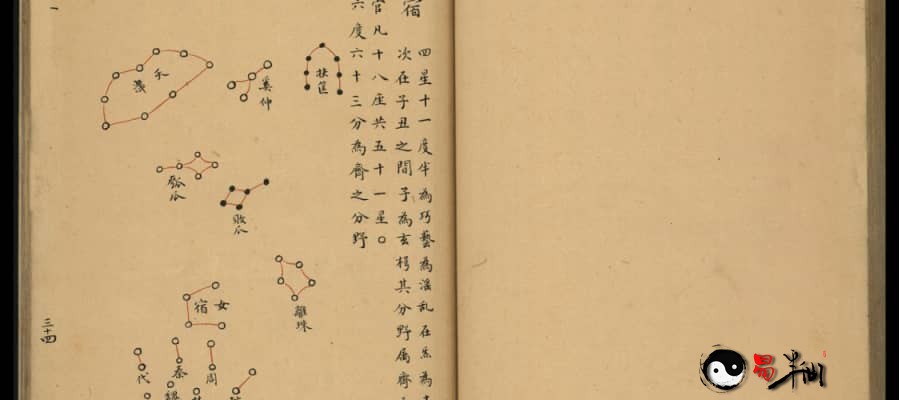 宿
四星十一度半為巧藝為淫乱在
次在子丑之間子為玄枵其分野属齊
官凡十八座共五十一星○
六度六十三分為齊之分野
扶筐
奚仲
天
瓠瓜
敗瓜
離珠
女宿
周
秦
代
三十四
易